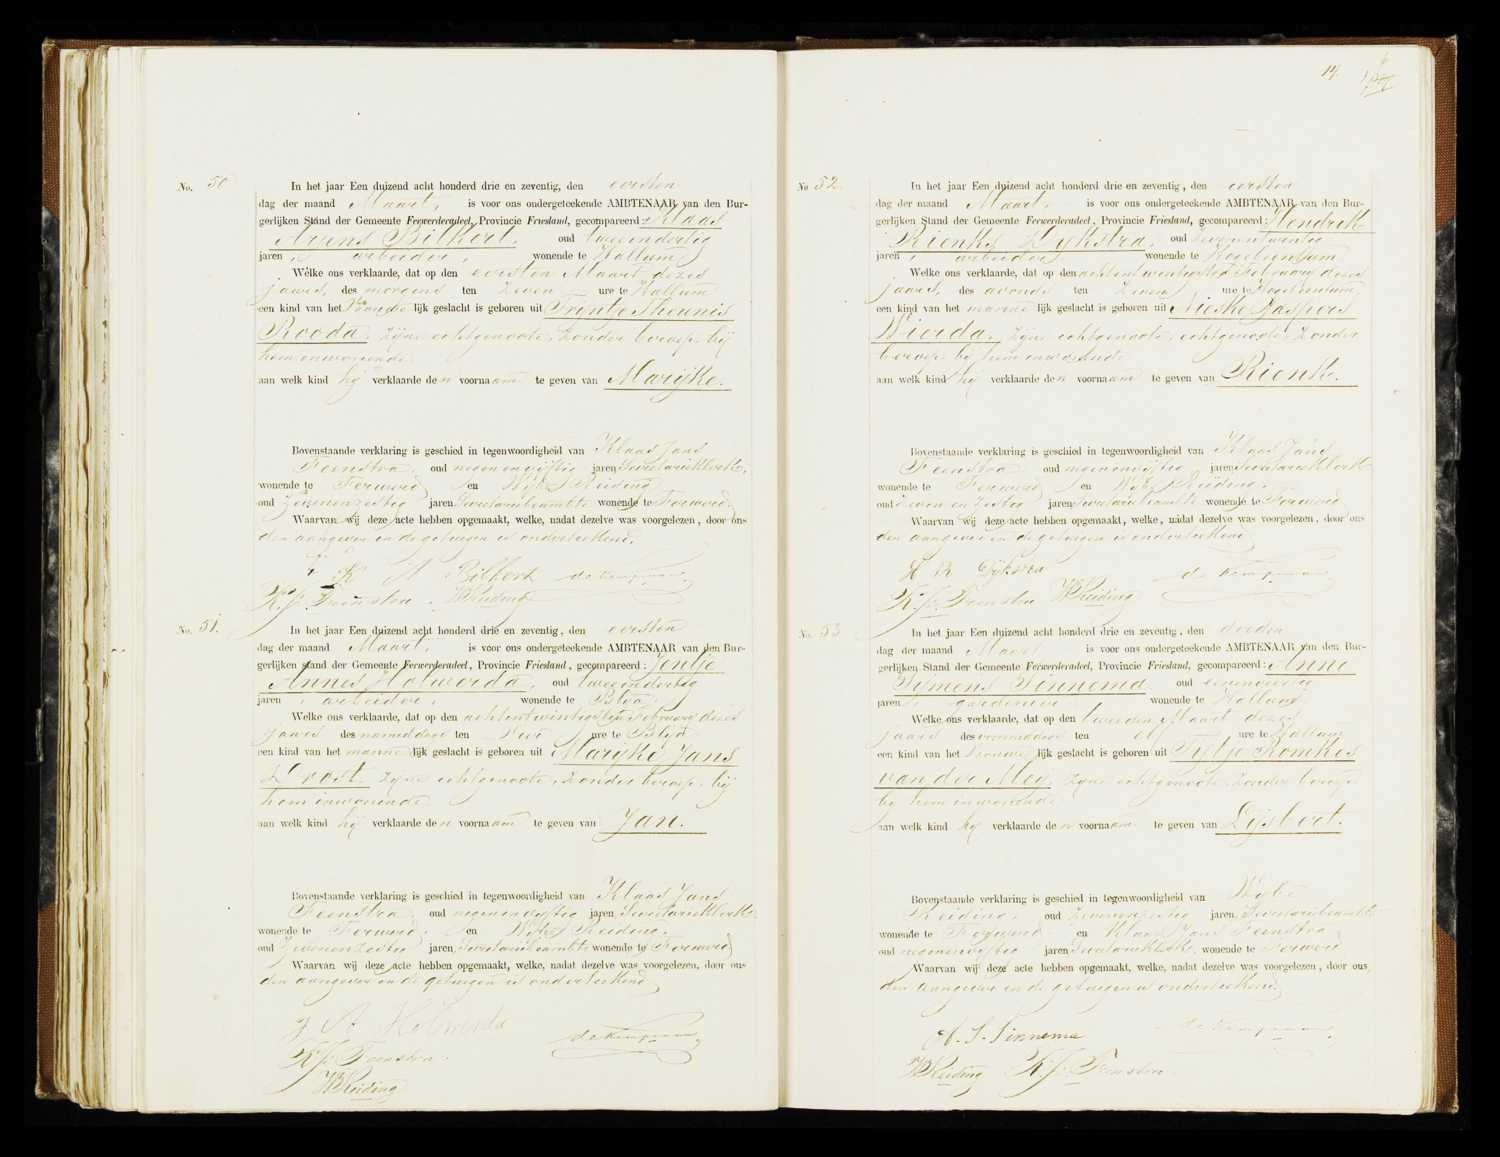 14
No. 50
In het jaar Een duizend acht honderd drie en zeventig, den eersten
dag der maand Maart, is voor ons ondergeteekende AMBTENAAR van den Bur-
gerlijken Stand der Gemeente Ferwerderadeel, Provincie Friesland, gecompareerd: Klaas
Arjens Bilkert, oud tweeendertig
jaren, arbeider, wonende te Hallum
Welke ons verklaarde, dat op den eersten Maart dezes
jaars, des morgens ten zeven ure te Hallum
een kind van het vrouwelijk geslacht is geboren uit Trijntje Theunis
Rooda, zijne echtgenoote, zonder beroep, bij
hem inwonende
aan welk kind hij verklaarde den voornaam te geven van Marijke.
Bovenstaande verklaring is geschied in tegenwoordigheid van Klaas Jans
Feenstra, oud negenenvijftig jaren, Secretarieklerk,
wonende te Ferwerd en Wijbe Reiding
oud zevenenzestig jaren, Secretariebeambte wonende te Ferwerd
Waarvan wij deze acte hebben opgemaakt, welke, nadat dezelve was voorgelezen, door ons
den aangever en de getuigen is onderteekend.
K A Bilkert de Kempenaer
K. J. Feenstra. W Reiding
No. 51.
In het jaar Een duizend acht honderd drie en zeventig, den eersten
dag der maand Maart, is voor ons ondergeteekende AMBTENAAR van den Bur-
gerlijken stand der Gemeente Ferwerderadeel, Provincie Friesland, gecompareerd: Jentje
Annes Holwerda, oud tweeendertig
jaren, arbeider, wonende te Blija
Welke ons verklaarde, dat op den achtentwintigsten Februarij dezes
jaars des namiddags ten twee ure te Blija
een kind van het mannelijk geslacht is geboren uit Marijke Jans
Drost, zijne echtgenoote, zonder beroep, bij
hem inwonende
aan welk kind hij verklaarde den voornaam te geven van Jan.
Bovenstaande verklaring is geschied in tegenwoordigheid van Klaas Jans
Feenstra, oud negenenvijftig jaren, Secretarieklerk,
wonende te Ferwerd, en Wijbe Reiding,
oud zevenenzestig jaren, Secretariebeambte wonende te Ferwerd
Waarvan wij deze acte hebben opgemaakt, welke, nadat dezelve was voorgelezen, door ons
den aangever en de getuigen is onderteekend
J A Holwerda
de Kempenaer
K. J. Feenstra.
W Reiding
No 52.
In het jaar Een duizend acht honderd drie en zeventig, den eersten
dag der maand Maart is voor ons ondergeteekende AMBTENAAR van den Bur-
gerlijken Stand der Gemeente Ferwerderadeel, Provincie Friesland, gecompareerd: Hendrik
Rienks Dijkstra, oud zevenentwintig
jaren, arbeider wonende te Hogebeintum
Welke ons verklaarde, dat op den achtentwintigsten Februarij dezes
jaars, des avonds ten zeven ure te Hogebeintum
een kind van het mannelijk geslacht is geboren uit Nieske Jaspers
Wierda, zijne echtgenoote, echtgenoote, zonder
beroep, bij hem inwonende
aan welk kind hij verklaarde den voornaam te geven van Rienk.
Bovenstaande verklaring is geschied in tegenwoordigheid van Klaas Jans
Feenstra oud negenenvijftig jaren, Secretarieklerk
wonende te Ferwerd en Wijbe Reiding,
oud zeven en zestig jaren, Secretariebeambte wonende te Ferwerd
Waarvan wij deze acte hebben opgemaakt, welke, nadat dezelve was voorgelezen, door ons
den aangever en de getuigen is onderteekend
H R Dijkstra de Kempenaer
K. J. Feenstra W Reiding
No. 53
In het jaar Een duizend acht honderd drie en zeventig, den derden
dag der maand Maart is voor ons ondergeteekende AMBTENAAR van den Bur-
gerlijken Stand der Gemeente Ferwerderadeel, Provincie Friesland, gecompareerd: Anne
Sijmens Sinnema oud eenenveertig
jaren, gardenier wonende te Hallum
Welke ons verklaarde, dat op den tweeden Maart dezes
jaars des voormiddags ten elf ure te Hallum
een kind van het vrouwelijk geslacht is geboren uit Tietje Romkes
van der Meij, zijne echtgenoote, zonder beroep,
bij hem inwonende
aan welk kind hij verklaarde den voornaam te geven van Dijsbert.
Bovenstaande verklaring is geschied in tegenwoordigheid van Wijbe
Reiding, oud zevenenzestig jaren, Secretariebeambte
wonende te Ferwerd en Klaas Jans Feenstra
oud negenenvijftig jaren Secretarieklerk, wonende te Ferwerd
Waarvan wij deze acte hebben opgemaakt, welke, nadat dezelve was voorgelezen, door ons
den aangever en de getuigen is onderteekend.
A. S. Sinnema de Kempenaer
W Reiding K. J. Feenstra